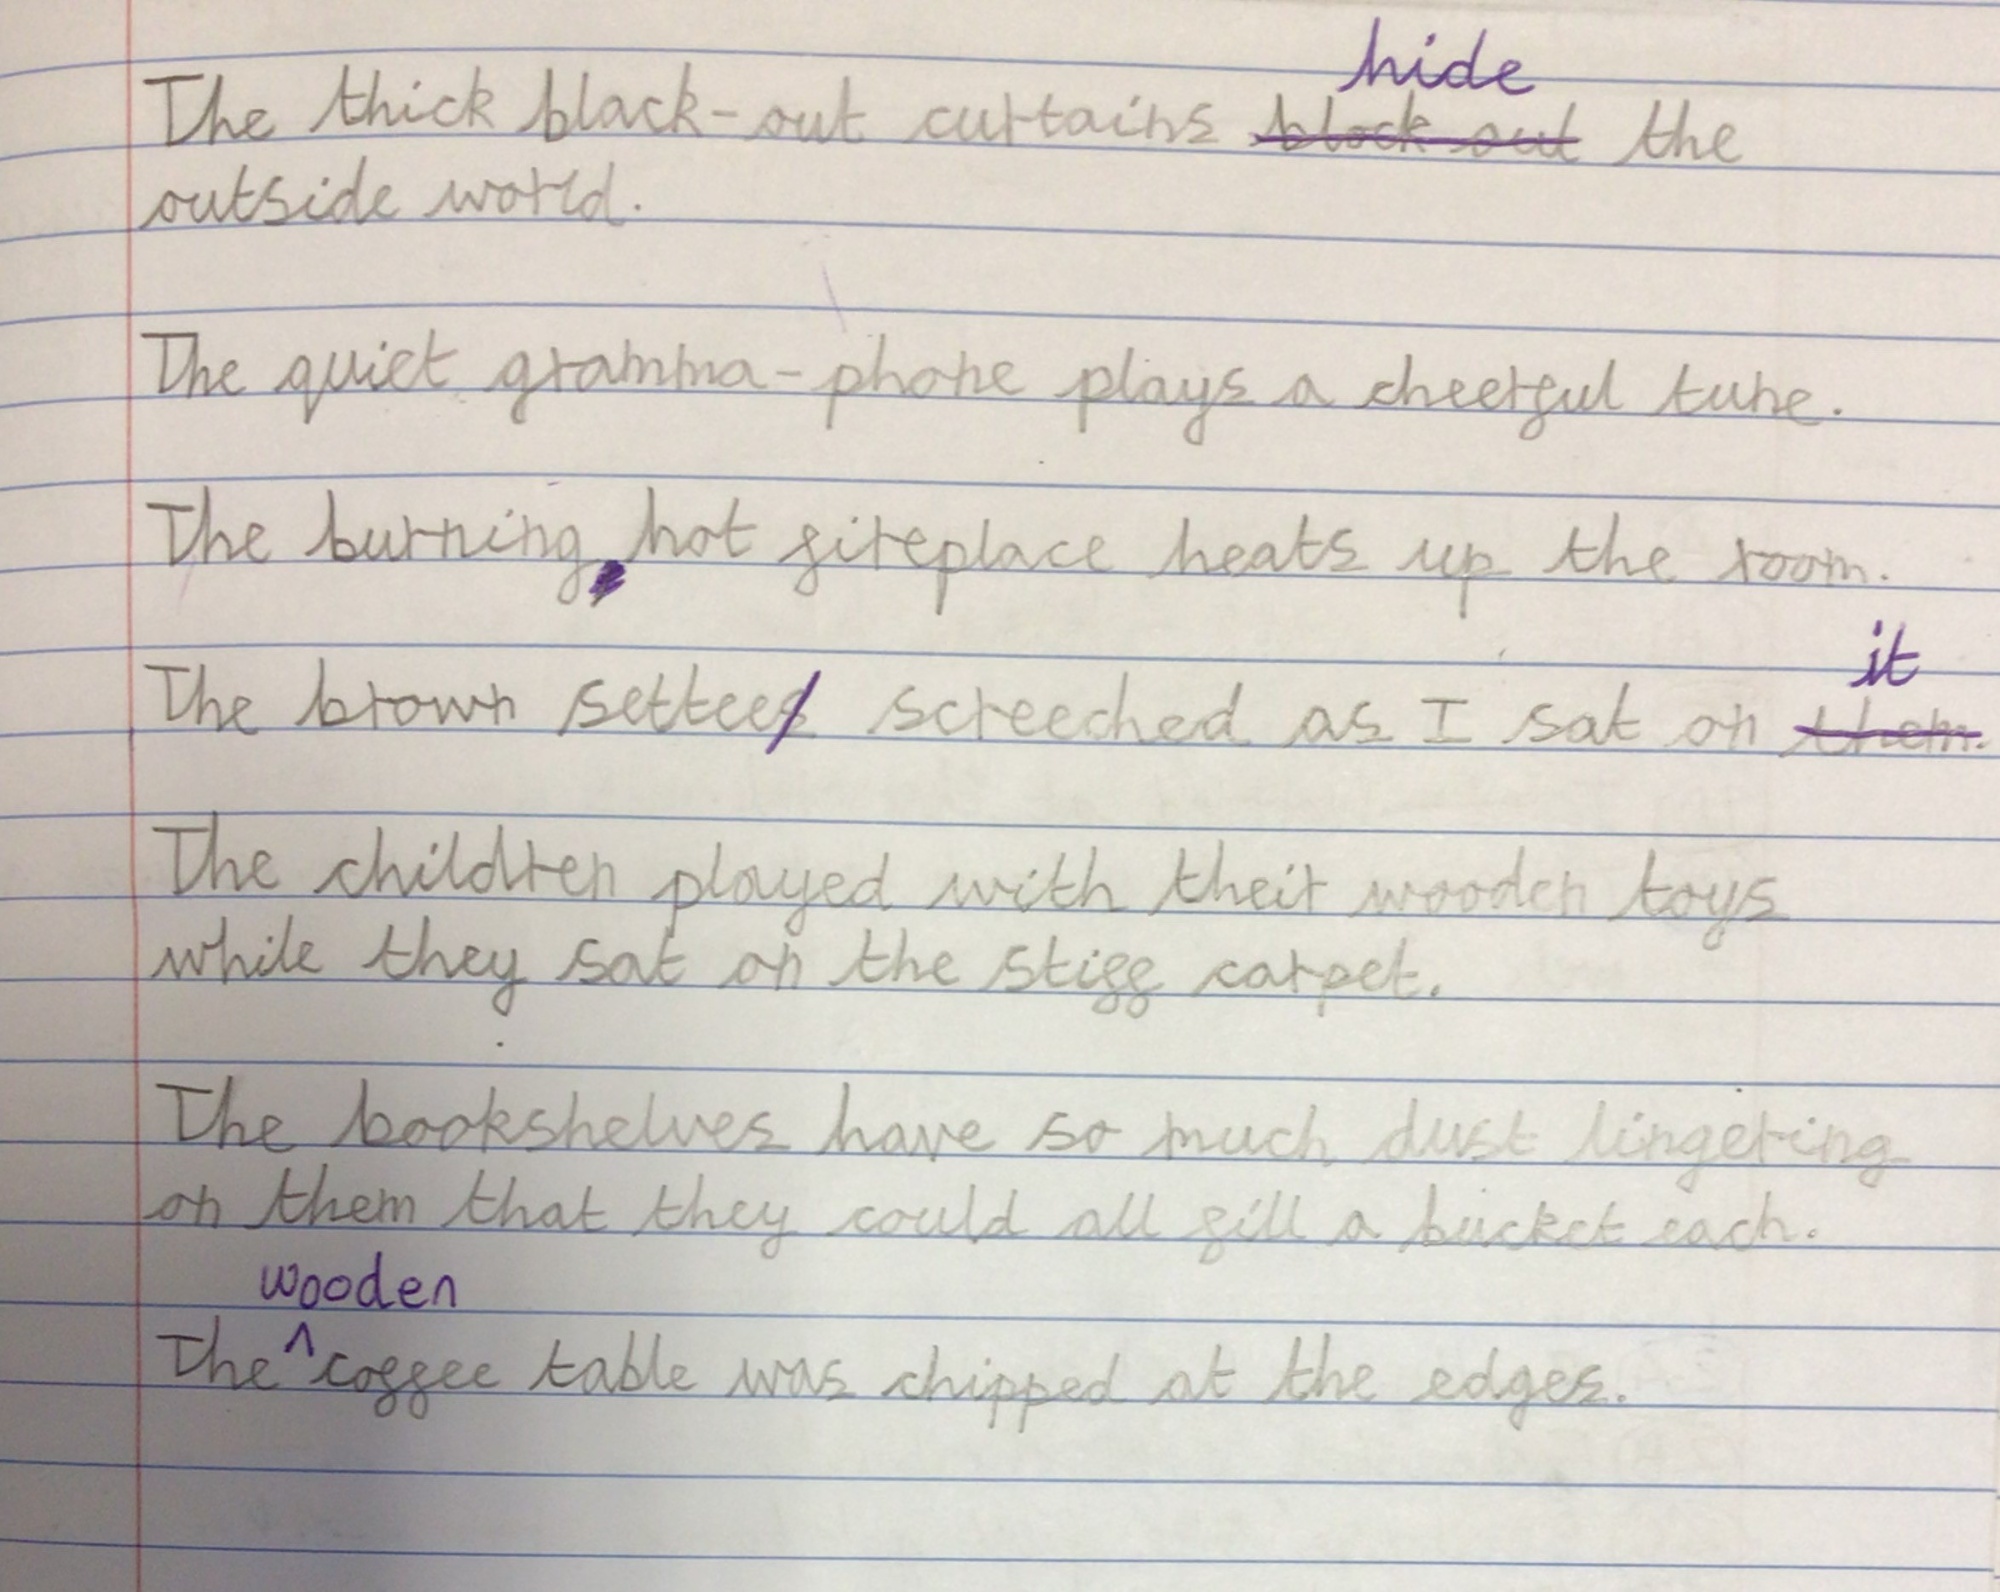 hide
The thick black-out curtains block out the
outside world.
The quiet gramma-phone plays a cheerful tune.
The burning, hot fireplace heats up the room.
it
The brown settees screeched as I sat on them.
The children played with their wooden toys
while they sat on the stiff carpet.
The bookshelves have so much dust lingering
on them that they could all fill a bucket each.
wooden
The ^ coffee table was chipped at the edges.